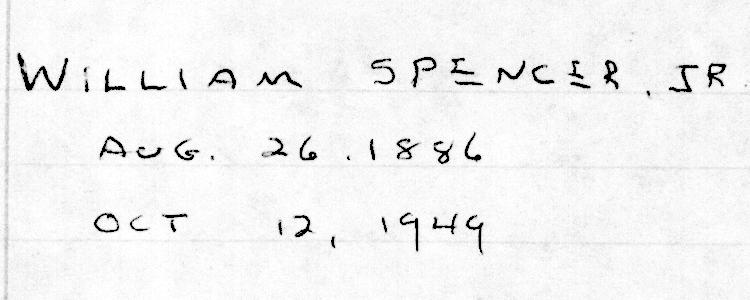 WILLIAM SPENCER, JR
AUG. 26. 1886
OCT 12, 1949